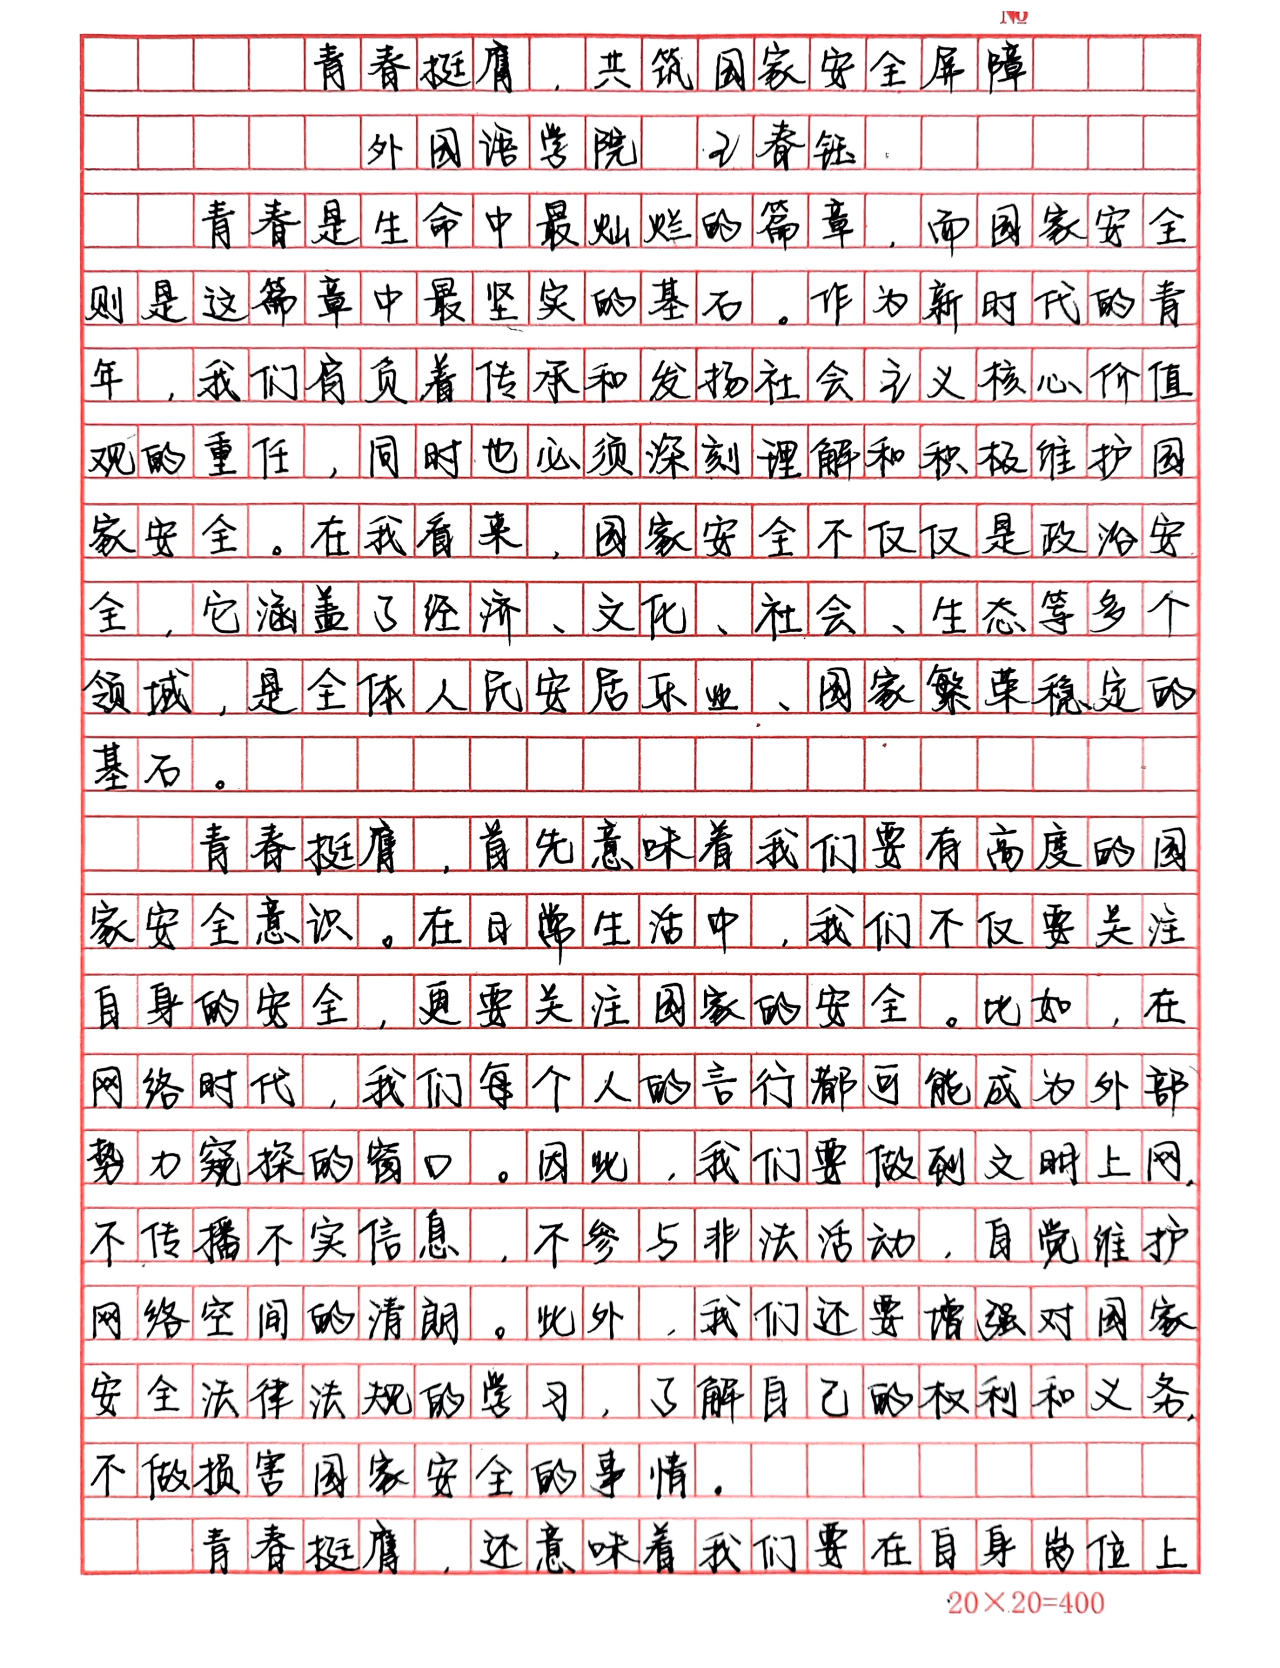 №
青春挺膺，共筑国家安全屏障
外国语学院 王春钰
青春是生命中最灿烂的篇章，而国家安全
则是这篇章中最坚实的基石。作为新时代的青
年，我们肩负着传承和发扬社会主义核心价值
观的重任，同时也必须深刻理解和积极维护国
家安全。在我看来，国家安全不仅仅是政治安
全，它涵盖了经济、文化、社会、生态等多个
领域，是全体人民安居乐业、国家繁荣稳定的
基石。
青春挺膺，首先意味着我们要有高度的国
家安全意识。在日常生活中，我们不仅要关注
自身的安全，更要关注国家的安全。比如，在
网络时代，我们每个人的言行都可能成为外部
势力窥探的窗口。因此，我们要做到文明上网，
不传播不实信息，不参与非法活动，自觉维护
网络空间的清朗。此外，我们还要增强对国家
安全法律法规的学习，了解自己的权利和义务，
不做损害国家安全的事情。
青春挺膺，还意味着我们要在自身岗位上
20×20=400